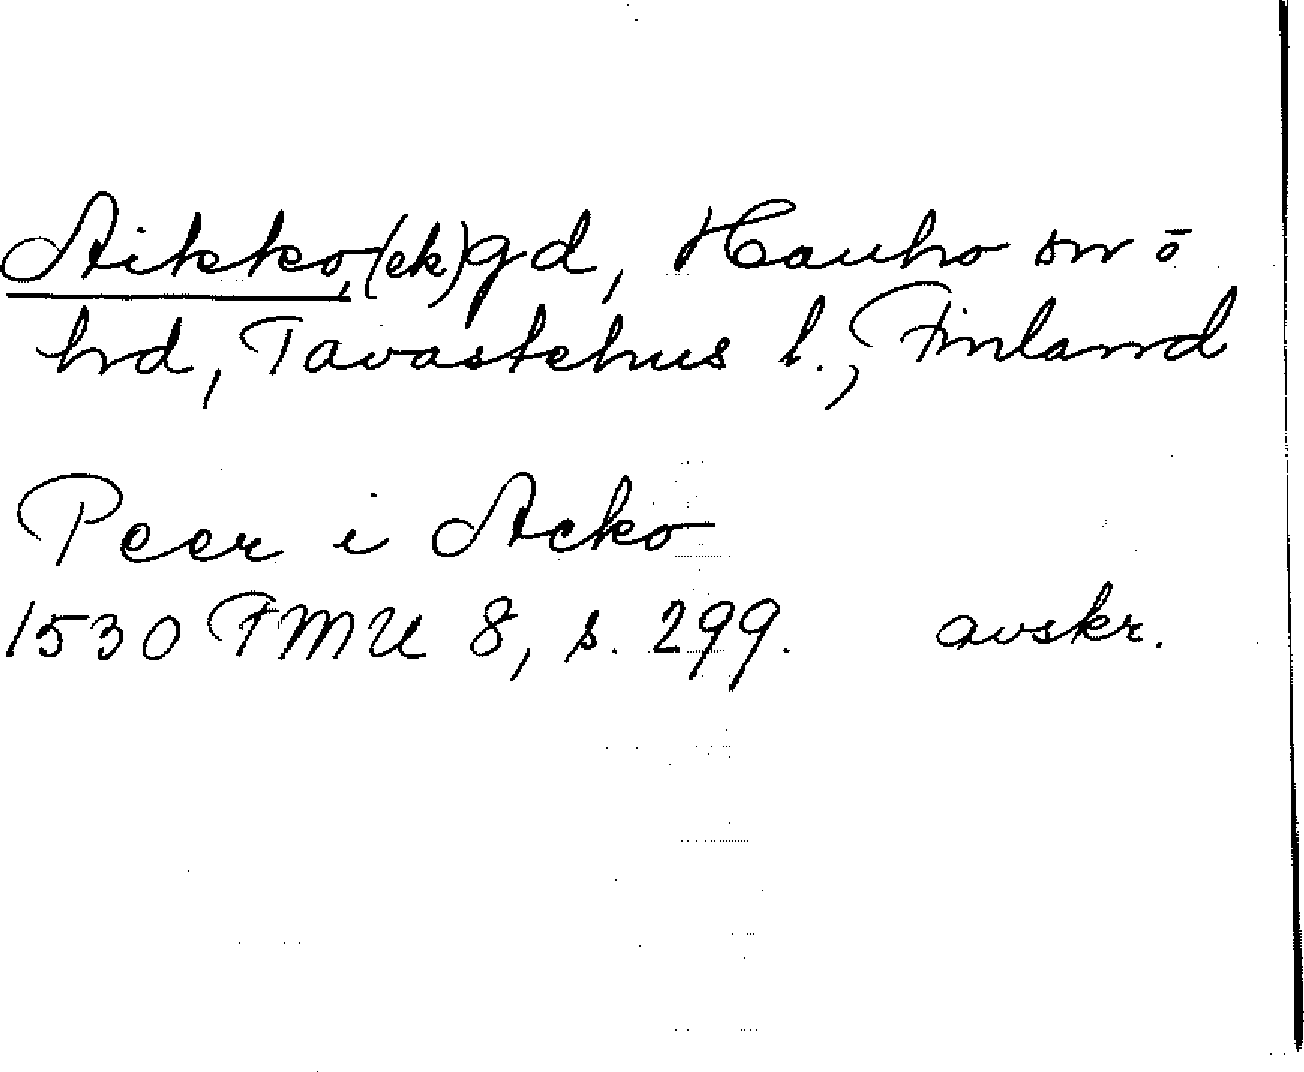 Aikko, (ek) gd, Hauho sn ō
hd, Tavastehus l., Finland
Peer i Acko
1530 FMU 8, s. 299. avskr.